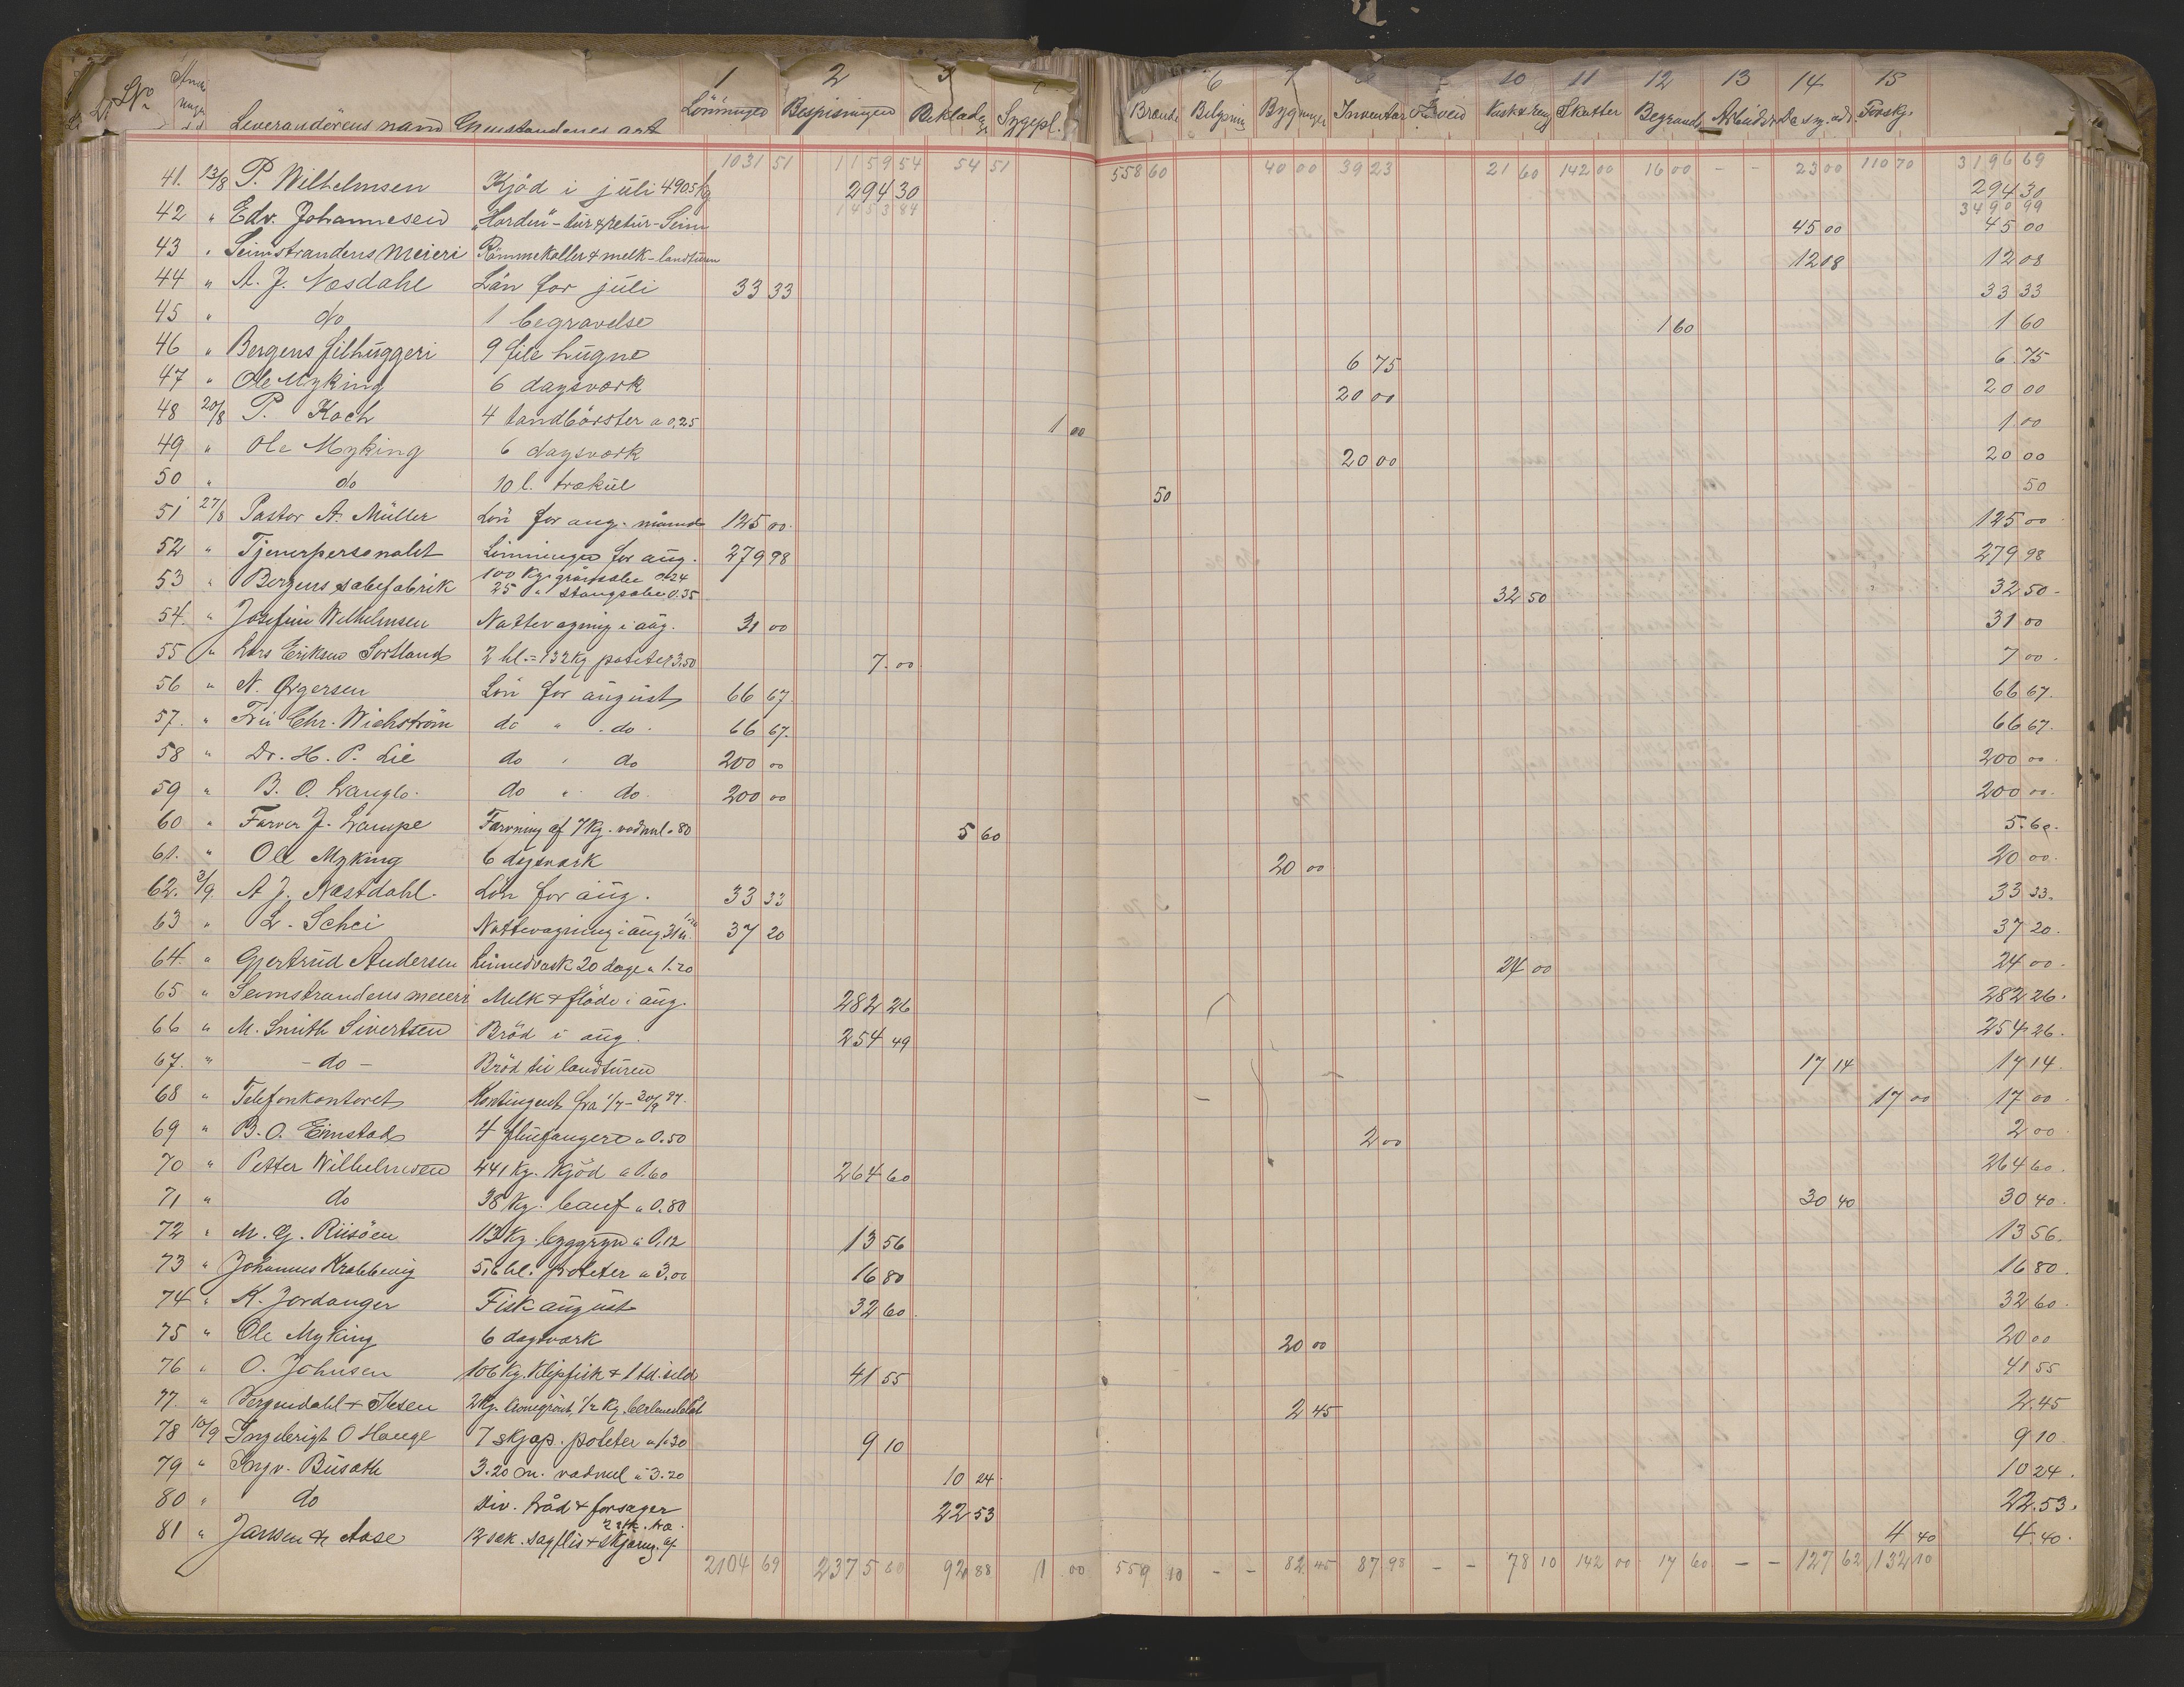 No 1 2 3 6 7 10 11 12 13 14 15
Leverandörens navn Gjenstandenes art Lönninger Bespisningen Beklædn. Sygepl. Brænde Belysning Bygninger Inventar Vask & reng Skatter Begravels Arbeids Forskj.
1031 51 1159 54 54 51 558 60 40 00 39 23 21 60 142 00 16 00 - - 23 00 110 70 3196 69
41. 13/8 P. Wilhelmsen Kjöd i juli 490.5 kg 294 30 294 30
1453 84 3490 99
42 " Edv. Johannesen "Horden" - tur & retur - Seim 45 00 45 00
43 " Seimstrandens Meieri Römmekoller & melk - landturen 12 08 12 08
44 " A. J. Næsdahl Lön for juli 33 33 33 33
45 " do 1 begravelse 1 60 1 60
46 " Bergens filhuggeri 9 file hugne 6 75 6 75
47 " Ole Myking 6 dagsværk 20 00 20 00
48 20/8 P. Koch 4 tandbörster a 0,25 1 00 1 00
49 " Ole Myking 6 dagsværk 20 00 20 00
50 " do 10 l. trækul 50 50
51 27/8 Pastor A. Müller Lön for aug. maaned 125 00 125 00
52 " Tjenerpersonalet Lönninger for aug. 279 98 279 98
53 " Bergens sæbefabrik 100 Kg. grönsæbe 0.24
25 " stangsæbe 0.35 32 50 32 50
54. " Josefine Wilhelmsen Nattevagning i aug. 31 00 31 00
55 " Lars Eriksen Sortland 2 hl. = 132 Kg poteter 3.50 7.00 7 00
56 " N. Örgersen Lön for august 66 67 66 67
57. " Fru Chr. Wichström do " do. 66 67. 66 67.
58 " Dr. H. P. Lie do " do 200 00 200 00
59 " B. O. Langlo. do " do 200 00 200 00
60 " Farver J. Lampe Farvning af 7 Kg. vadmel a 80 5 60 5.60.
61. " Ole Myking 6 dagsværk 20 00 20 00
62. 3/9. A. J. Næstdahl. Lön for aug. 33 33 33 33.
63 " L. Schei Nattevagning i aug. 31 n. 1.20 37 20 37 20.
64. " Gjertrud Andersen Linnedvask 20 dage a 1.20 24 00 24 00
65 " Seimstrandens meieri Melk & flöde i aug. 282 26 282 26.
66 " M. Smith Sivertsen Bröd i aug. 254 49 254 26.
67. " - do - Bröd til landturen 17 14 17 14.
68 " Telefonkontoret Kontingent fra 1/7 - 30/9 97. 17 00 17 00
69 " B. O. Eimstad 4 fluefangere a 0.50 2 00 2 00
70 " Petter Wilhelmsen 441 Kg. Kjöd a 0.60 264 60 264 60.
71 " do 38 Kg. bauf a 0.80 30 40 30 40.
72 " M. G. Riisöen 113 Kg. byggryn a 0.12 13 56 13 56.
73 " Johannes Krabbevig 5,6 hl. poteter a 3.00 16 80 16 80.
74 " K. Jordanger Fisk august 32 60. 32 60.
75 " Ole Myking 6 dagsværk 20 00 20 00
76 " O. Johnsen 106 Kg. Klipfisk & 1 td. sild 41 55 41 55
77. " Bergendahl & 2 Kg. 1/2 Kg. 2 45 2.45
78 10/9 Ingebrigt O Hauge 7 skjæp. poteter a 1.30 9 10 9 10
79 " Ingv. Busath 3.20 m. vadmel a 3.20 10 24. 10 24.
80 " do Div. tråd & forsager 22 53 22.53.
81 " Janssen & Aase 12 sæk. sagflis & skjæring af 4 40 4.40.
2104 69 2375 80 92 88 1 00 559 10 - - 82 45 87 98 - - 78 10 142 00 17 60 - - 127 62 132 10